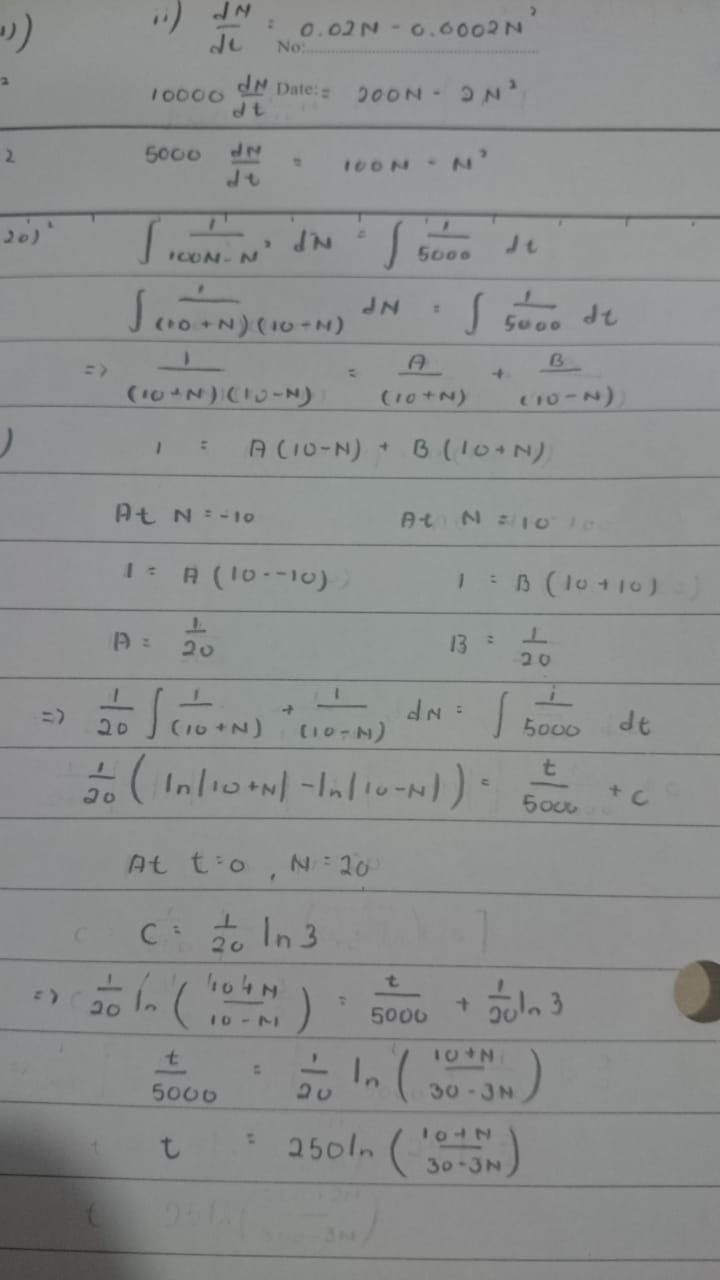 ii) dN/dt = 0.02N - 0.0002N²
No:
10000 dN/dt Date: = 200N - 2N²
2 5000 dN/dt = 100N - N²
20)² ∫ 1/(100N - N²) dN = ∫ 1/5000 dt
∫ 1/((10+N)(10-N)) dN = ∫ 1/5000 dt
=> 1/((10+N)(10-N)) = A/(10+N) + B/(10-N)
) 1 = A(10-N) + B(10+N)
At N = -10 At N = 10
1 = A(10--10) 1 = B(10+10)
A = 1/20 B = 1/20
=> 1/20 ∫ 1/(10+N) + 1/(10-N) dN = ∫ 1/5000 dt
1/20 (ln|10+N| - ln|10-N|) = t/5000 + C
At t=0, N=20
C = 1/20 ln 3
=> 1/20 ln((10+N)/(10-N)) = t/5000 + 1/20 ln 3
t/5000 = 1/20 ln((10+N)/(30-3N))
t = 250 ln((10+N)/(30-3N))